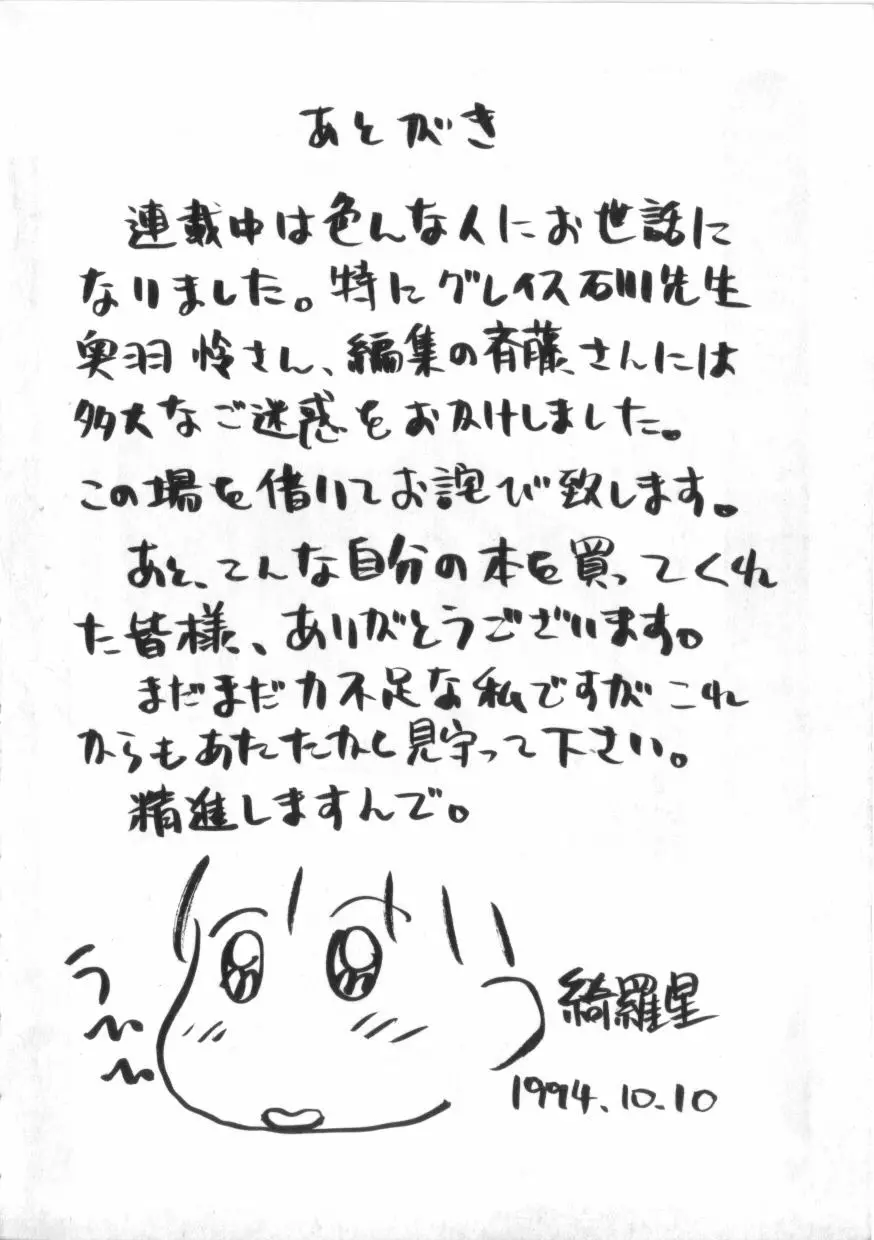 あとがき
連載中は色んな人にお世話に
なりました。特にグレイス石川先生
奥羽怜さん、編集の斉藤さんには
多大なご迷惑をおかけしました。
この場を借りてお詫び致します。
あと、こんな自分の本を買ってくれ
た皆様、ありがとうございます。
まだまだ力不足な私ですがこれ
からもあたたかく見守って下さい。
精進しますんで。
う〜〜
綺羅星
1994.10.10